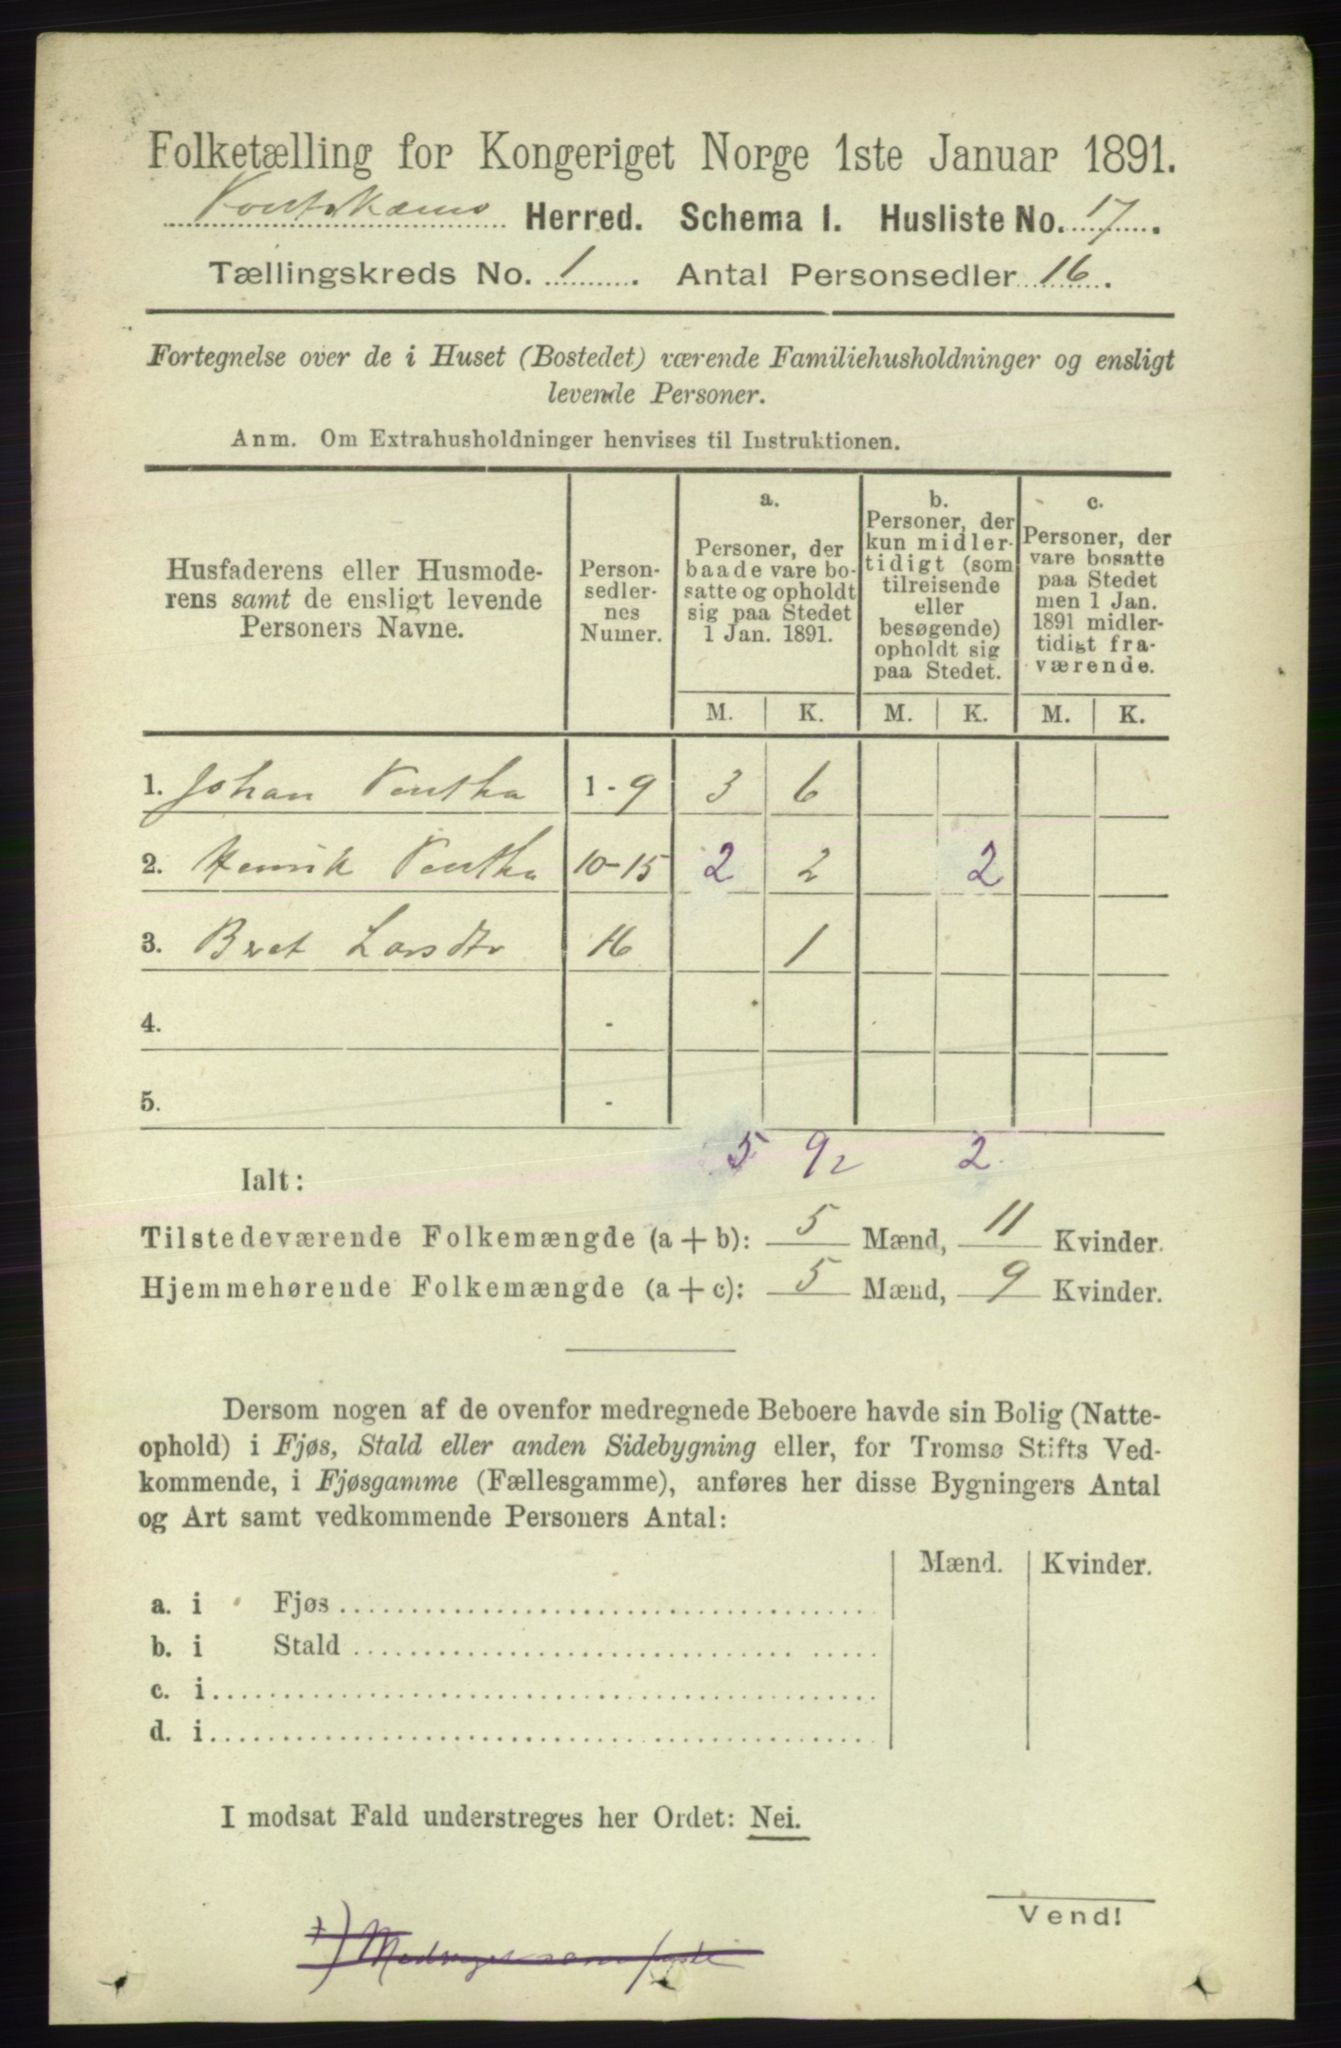 Folketælling for Kongeriget Norge 1ste Januar 1891.
Herred. Schema I. Husliste No. 17.
Tællingskreds No. 1. Antal Personsedler 16.
Fortegnelse over de i Huset (Bostedet) værende Familiehusholdninger og ensligt
levende Personer.
Anm. Om Extrahusholdninger henvises til Instruktionen.
Husfaderens eller Husmode-
rens samt de ensligt levende
Personers Navne.
Person-
sedler-
nes
Numer.
a.
Personer, der
baade vare bo-
satte og opholdt
sig paa Stedet
1 Jan. 1891.
b.
Personer, der
kun midler-
tidigt (som
tilreisende
eller
besøgende)
opholdt sig
paa Stedet.
c.
Personer, der
vare bosatte
paa Stedet
men 1 Jan.
1891 midler-
tidigt fra-
værende.
M. K. M. K. M. K.
1. Johan 1-9 3 6
2. Henrik 10-15 2 2 2
3. Bret Larsdtr 16 1
4. -
5. -
5 92 2
Ialt:
Tilstedeværende Folkemængde (a + b): 5 Mænd, 11 Kvinder.
Hjemmehørende Folkemængde (a + c): 5 Mænd, 9 Kvinder.
Dersom nogen af de ovenfor medregnede Beboere havde sin Bolig (Natte-
ophold) i Fjøs, Stald eller anden Sidebygning eller, for Tromsø Stifts Ved-
kommende, i Fjøsgamme (Fællesgamme), anføres her disse Bygningers Antal
og Art samt vedkommende Personers Antal:
Mænd. Kvinder.
a. i Fjøs
b. i Stald
c. i
d. i
I modsat Fald understreges her Ordet: Nei.
Vend!